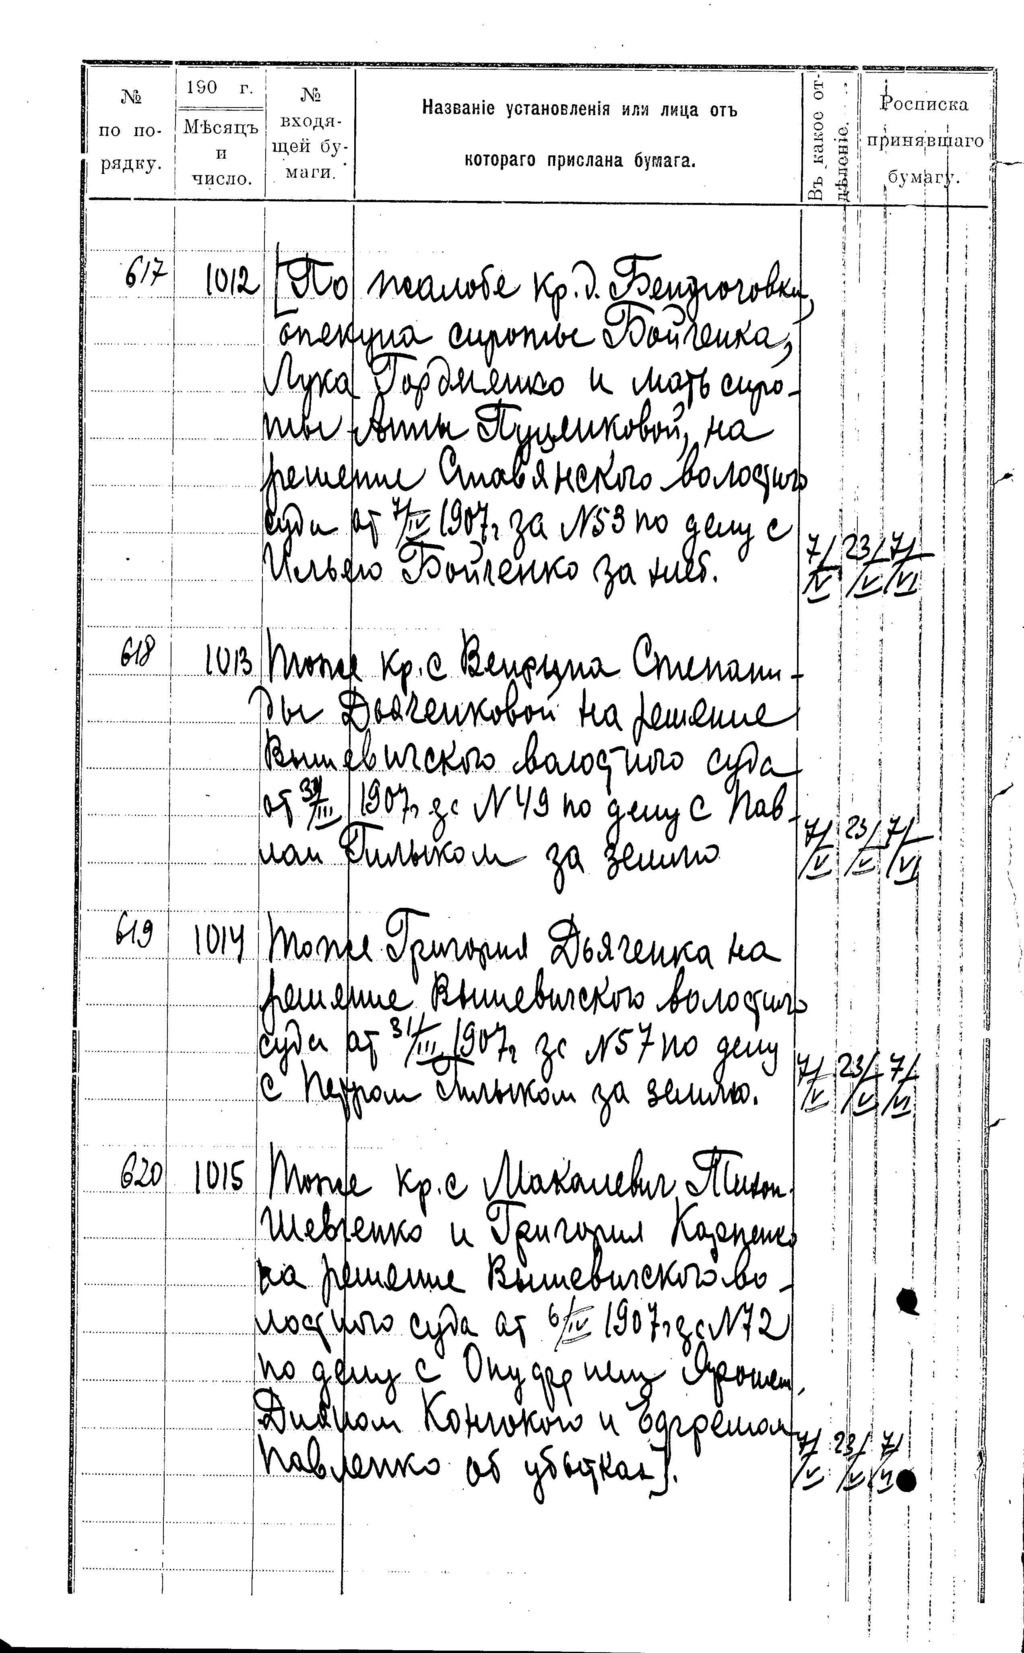 № по по- рядку.
190 г.
Мѣсяцъ и число.
№ входя- щей бу- маги.
Названіе установленія или лица отъ
котораго прислана бумага.
Въ какое от- дѣленіе.
Росписка принявшаго бумагу.
617 1012 [По жалобе кр. д.
опекуна сироты Бойченка,
Лука Гордиенко и мать сиро-
ты Анны Пуценковой, на
решение Ставянского волостного
суда от 7/IV 1907 г за N53 по делу с
Ильею Бойченко за хлеб. 7/V 23/V 7/VI
618 1013 Тоже кр. с Вендина Степани-
ды Дьяченковой на решение
Вышевичского волостного суда
от 31/III 1907 г за N49 по делу с Пав-
лом Гилыком за землю 7/V 23/V 7/VI
619 1014 Тоже Григория Дьяченка на
решение Вышевичского волостного
суда от 31/III 1907 г за N57 по делу
с Петром Гилыком за землю. 7/V 23/V 7/VI
620 1015 Тоже кр. с Макалевич Тихон
Шевченко и Григория
на решение Вышевичского во-
лостного суда от 6/IV 1907 г за N72
по делу с
Павленко об убытках]. 7/V 23/V 7/VI